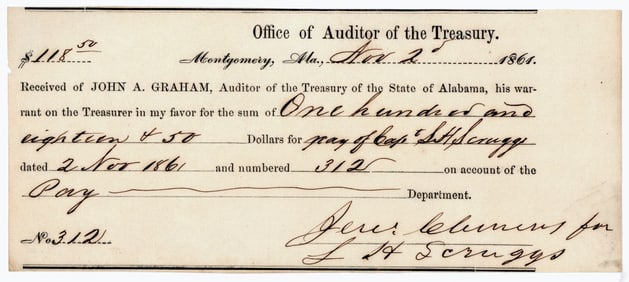 Office of Auditor of the Treasury.
$118.50 Montgomery, Ala., Nov 2d 1861.
Received of JOHN A. GRAHAM, Auditor of the Treasury of the State of Alabama, his war-
rant on the Treasurer in my favor for the sum of One hundred and
eighteen & 50 Dollars for pay of Capt S H Scruggs
dated 2 Nov 1861 and numbered 312 on account of the
Pay Department.
Jere: Clemens for
No. 312 L H Scruggs